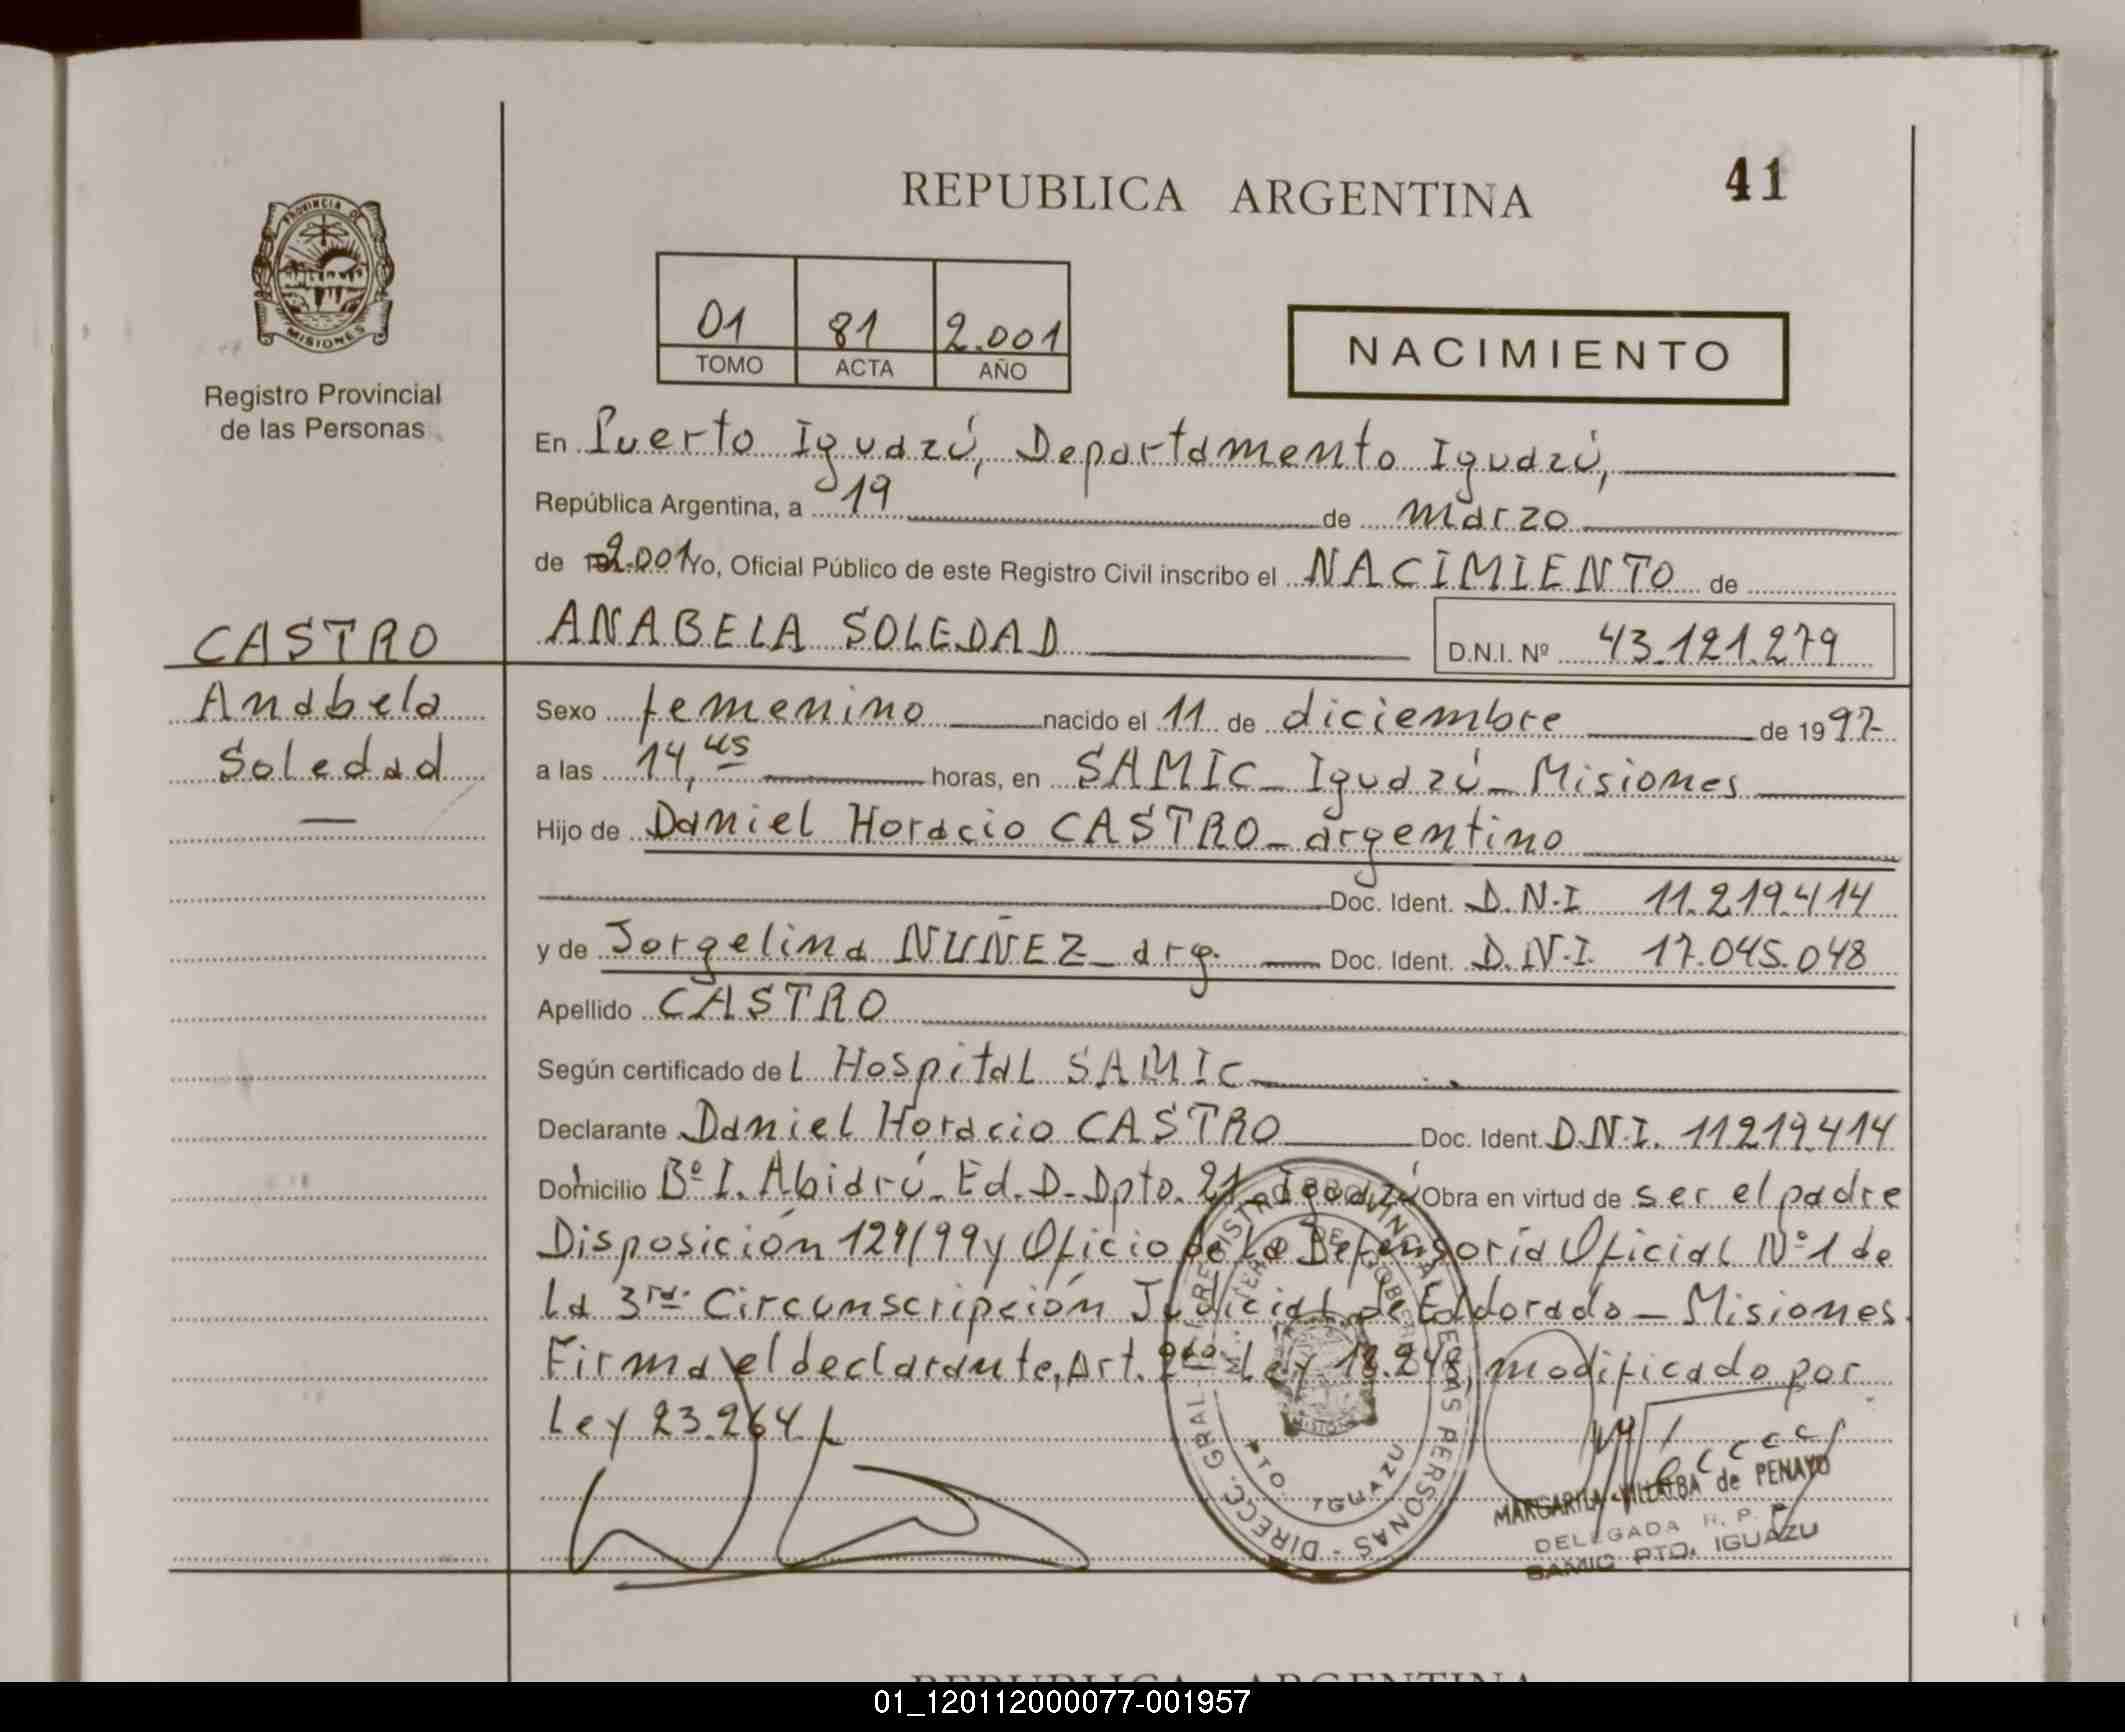 41
REPUBLICA ARGENTINA
PROVINCIA DE
MISIONES
Registro Provincial
de las Personas
01 81 2.001
TOMO ACTA AÑO
NACIMIENTO
En Puerto Iguazú, Departamento Iguazú,
República Argentina, a 19 de marzo
de 2.001 Yo, Oficial Público de este Registro Civil inscribo el NACIMIENTO de
ANABELA SOLEDAD D.N.I. Nº 43.121.279
CASTRO
Anabela
Soledad
Sexo femenino nacido el 11 de diciembre de 1997
a las 14,45 horas, en SAMIC - Iguazú - Misiones
Hijo de Daniel Horacio CASTRO - argentino
Doc. Ident. D.N.I 11.219.414
y de Jorgelina NUÑEZ - arg. Doc. Ident. D.N.I. 17.045.048
Apellido CASTRO
Según certificado del Hospital SAMIC
Declarante Daniel Horacio CASTRO Doc. Ident. D.N.I. 11219.414
Domicilio Bº I. Abidrú - Ed. D - Dpto. 21 - Iguazú Obra en virtud de ser el padre
Disposición 129/99 y Oficio de la Defensoría Oficial Nº 1 de
la 3ra. Circunscripción Judicial de Eldorado - Misiones.
Firma el declarante, Art. 2do Ley 18.248, modificado por
Ley 23.264
DIRECC. GRAL. REGISTRO PROVINCIAL DE LAS PERSONAS
PTO. IGUAZU
MARGARITA VILLALBA de PENAYO
DELEGADA R. P. P.
SAMIC PTO. IGUAZU
REPUBLICA ARGENTINA
01_120112000077-001957